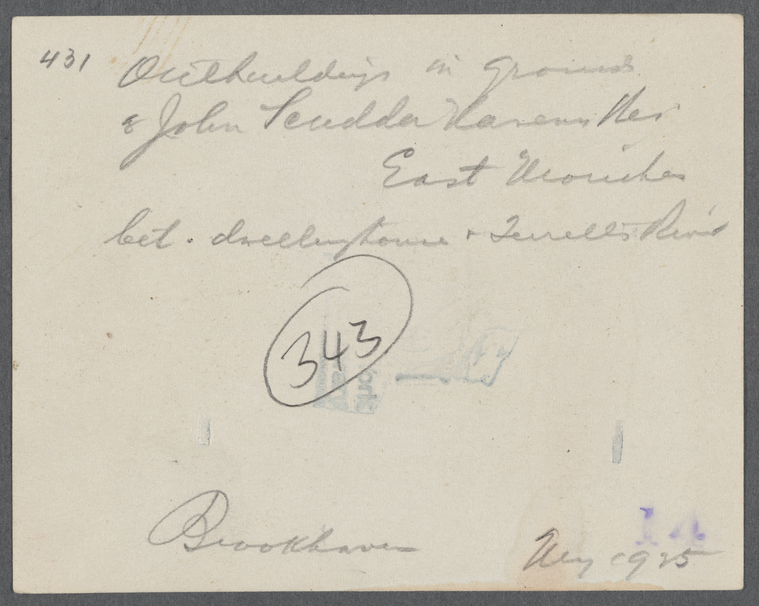 431
Outbuildings in grounds
of John Scudder Havens Res
East Moriches
bet. dwelling house + Terrells River
343
Brookhaven
14
May 1925